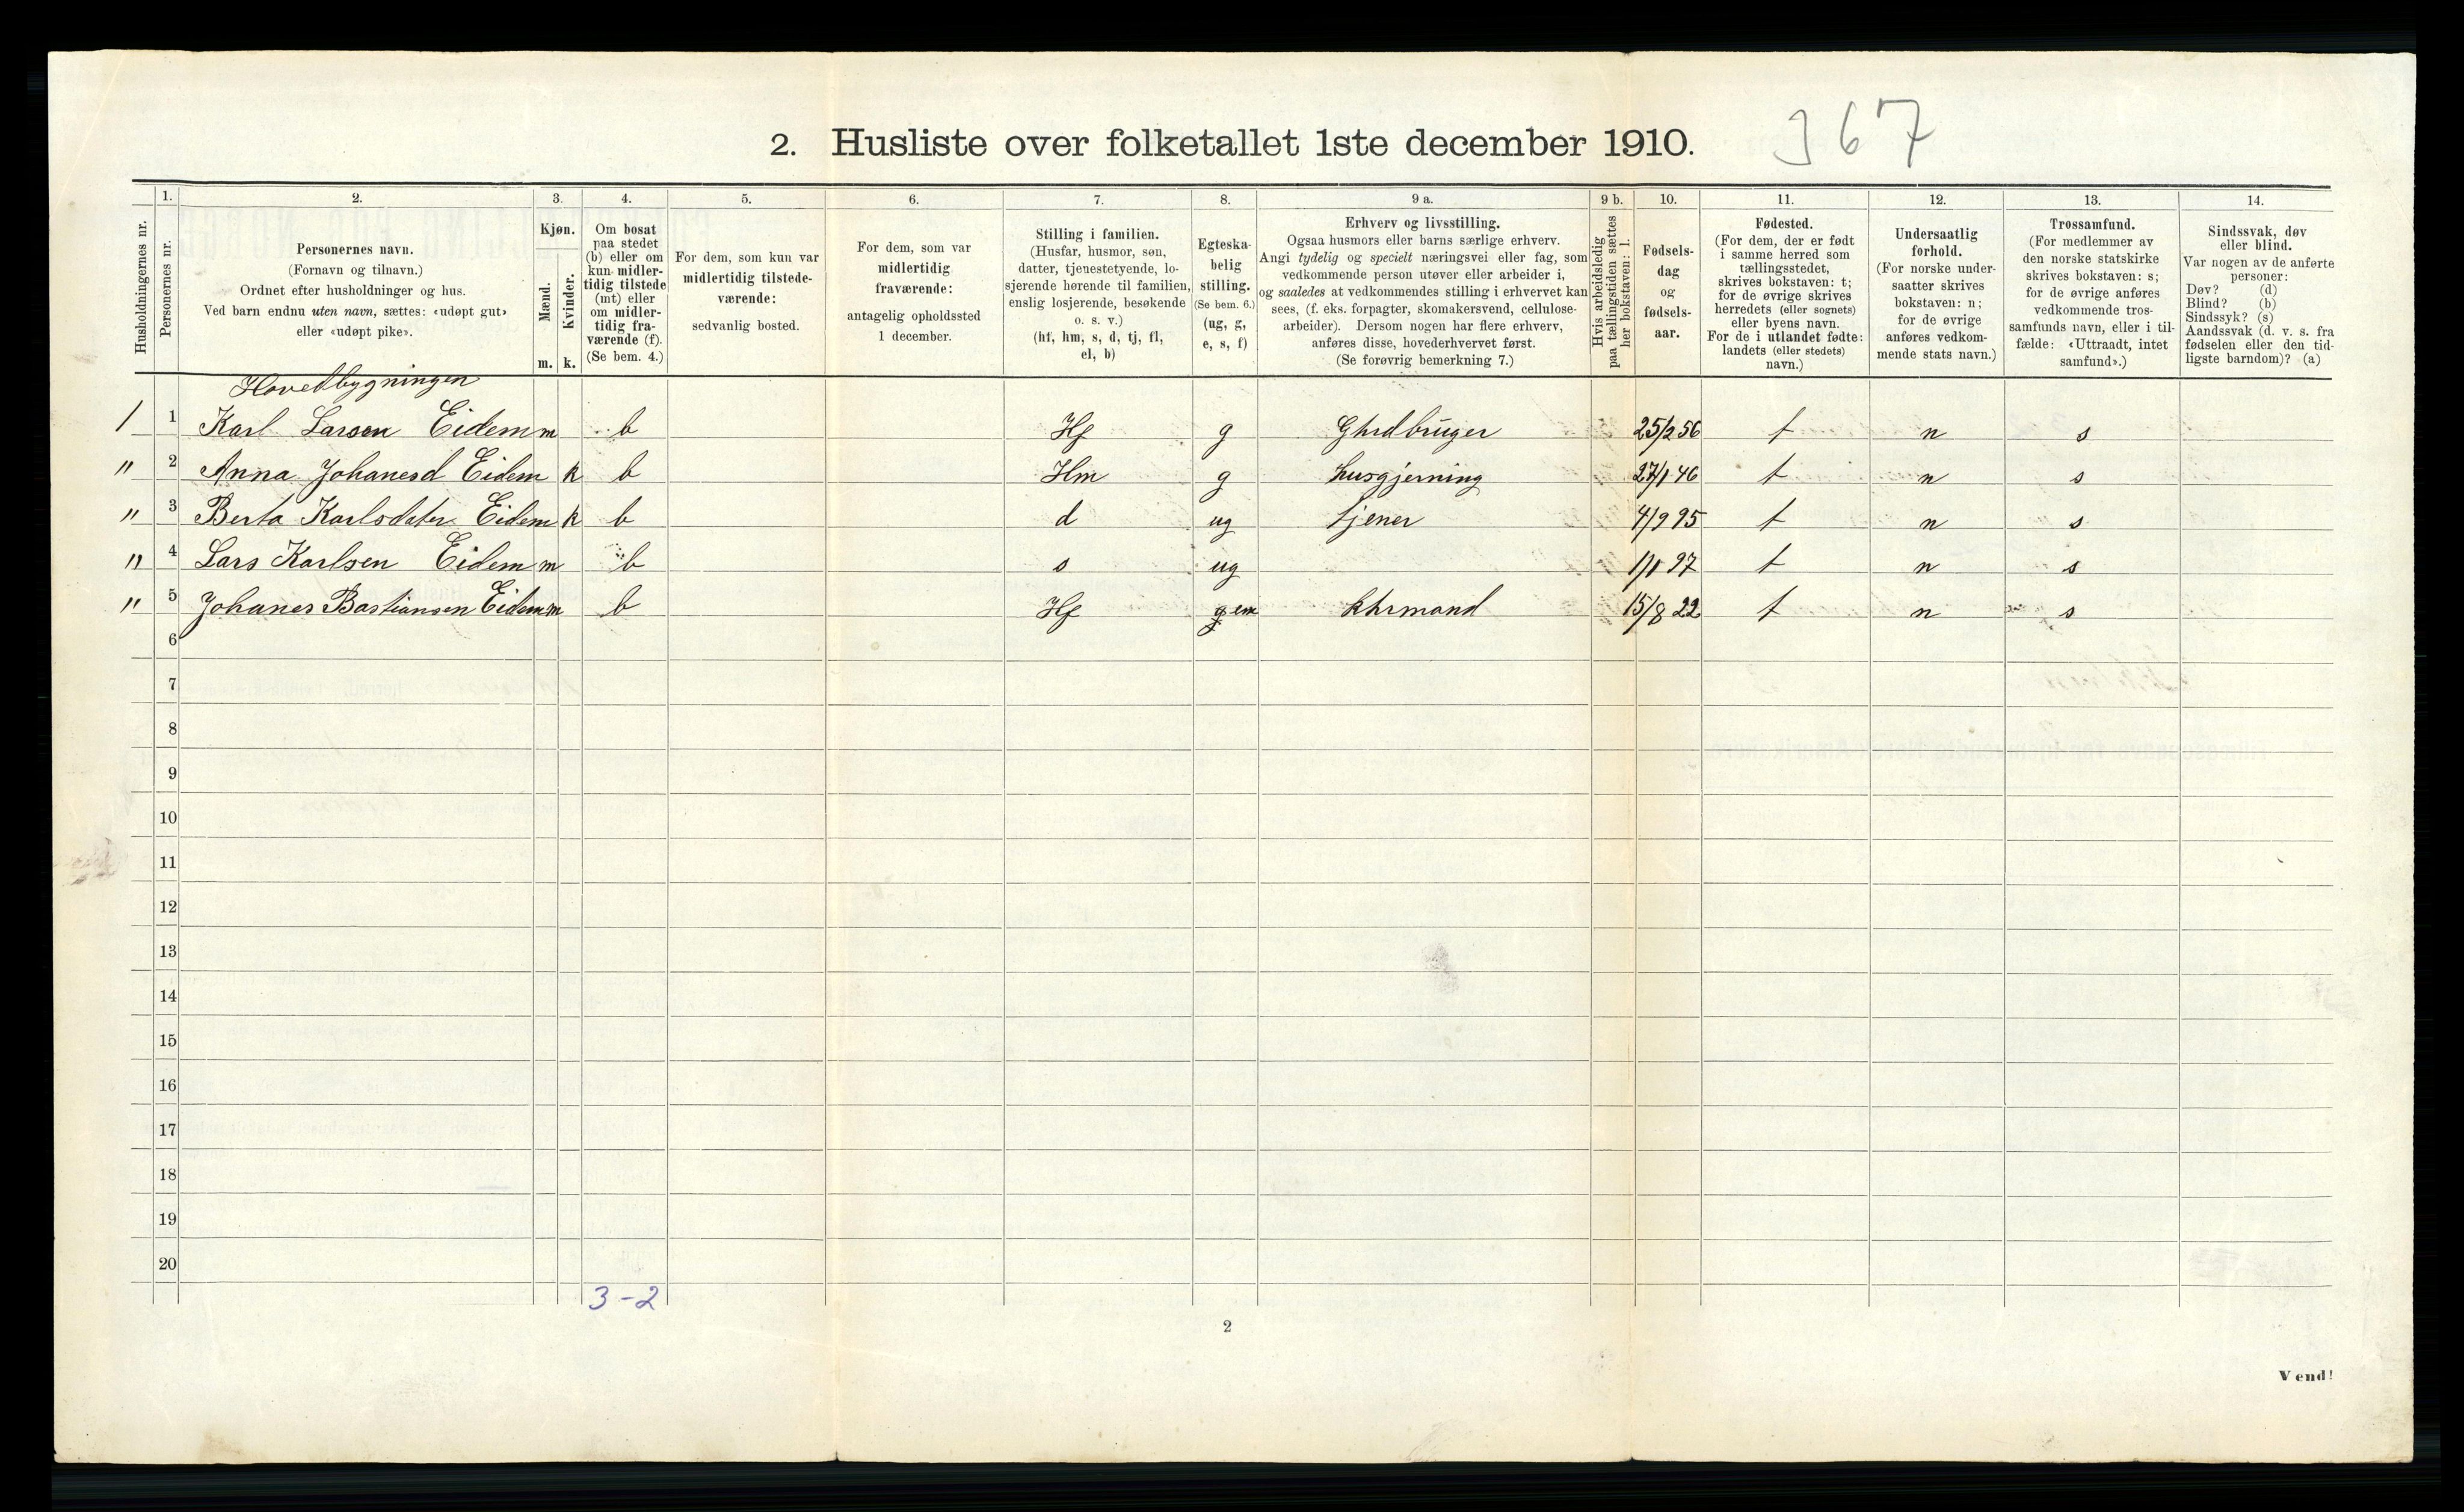 2. Husliste over folketallet 1ste december 1910. 367
Husholdningernes nr.
1.
Personernes nr.
2.
Personernes navn.
(Fornavn og tilnavn.)
Ordnet efter husholdninger og hus.
Ved barn endnu uten navn, sættes: «udøpt gut»
eller «udøpt pike».
3.
Kjøn.
Mænd.
m.
Kvinder.
k.
4.
Om bosat
paa stedet
(b) eller om
kun midler-
tidig tilstede
(mt) eller
om midler-
tidig fra-
værende (f).
(Se bem. 4.)
5.
For dem, som kun var
midlertidig tilstede-
værende:
sedvanlig bosted.
6.
For dem, som var
midlertidig
fraværende:
antagelig opholdssted
1 december.
7.
Stilling i familien.
(Husfar, husmor, søn,
datter, tjenestetyende, lo-
sjerende hørende til familien,
enslig losjerende, besøkende
o. s. v.)
(hf, hm, s, d, tj, fl,
el, b)
8.
Egteska-
belig
stilling.
(Se bem. 6.)
(ug, g,
e, s, f)
9 a.
Erhverv og livsstilling.
Ogsaa husmors eller barns særlige erhverv.
Angi tydelig og specielt næringsvei eller fag, som
vedkommende person utøver eller arbeider i,
og saaledes at vedkommendes stilling i erhvervet kan
sees, (f. eks. forpagter, skomakersvend, cellulose-
arbeider). Dersom nogen har flere erhverv,
anføres disse, hovederhvervet først.
(Se forøvrig bemerkning 7.)
9 b.
Hvis arbeidsledig
paa tællingstiden sættes
her bokstaven: l.
10.
Fødsels-
dag
og
fødsels-
aar.
11.
Fødested.
(For dem, der er født
i samme herred som
tællingsstedet,
skrives bokstaven: t;
for de øvrige skrives
herredets (eller sognets)
eller byens navn.
For de i utlandet fødte:
landets (eller stedets)
navn.)
12.
Undersaatlig
forhold.
(For norske under-
saatter skrives
bokstaven: n;
for de øvrige
anføres vedkom-
mende stats navn.)
13.
Trossamfund.
(For medlemmer av
den norske statskirke
skrives bokstaven: s;
for de øvrige anføres
vedkommende tros-
samfunds navn, eller i til-
fælde: «Uttraadt, intet
samfund».)
14.
Sindssvak, døv
eller blind.
Var nogen av de anførte
personer:
Døv? (d)
Blind? (b)
Sindssyk? (s)
Aandssvak (d. v. s. fra
fødselen eller den tid-
ligste barndom)? (a)
Hovedbygningen
1 1 Karl Larsen Eidem m b Hf g Ghrdbrúger 25/2 56 t n s
" 2 Anna Johanesd Eidem k b Hm g husgjerning 27/1 46 t n s
" 3 Berta Karlsdater Eidem k b d ug tjener 4/9 95 t n s
" 4 Lars Karlsen Eidem m b s ug 1/1 97 t n s
" 5 Johanes Bastiansen Eidem m b Hf g em khrmand 15/8 22 t n s
6
7
8
9
10
11
12
13
14
15
16
17
18
19
20
3-2
2
Vend!